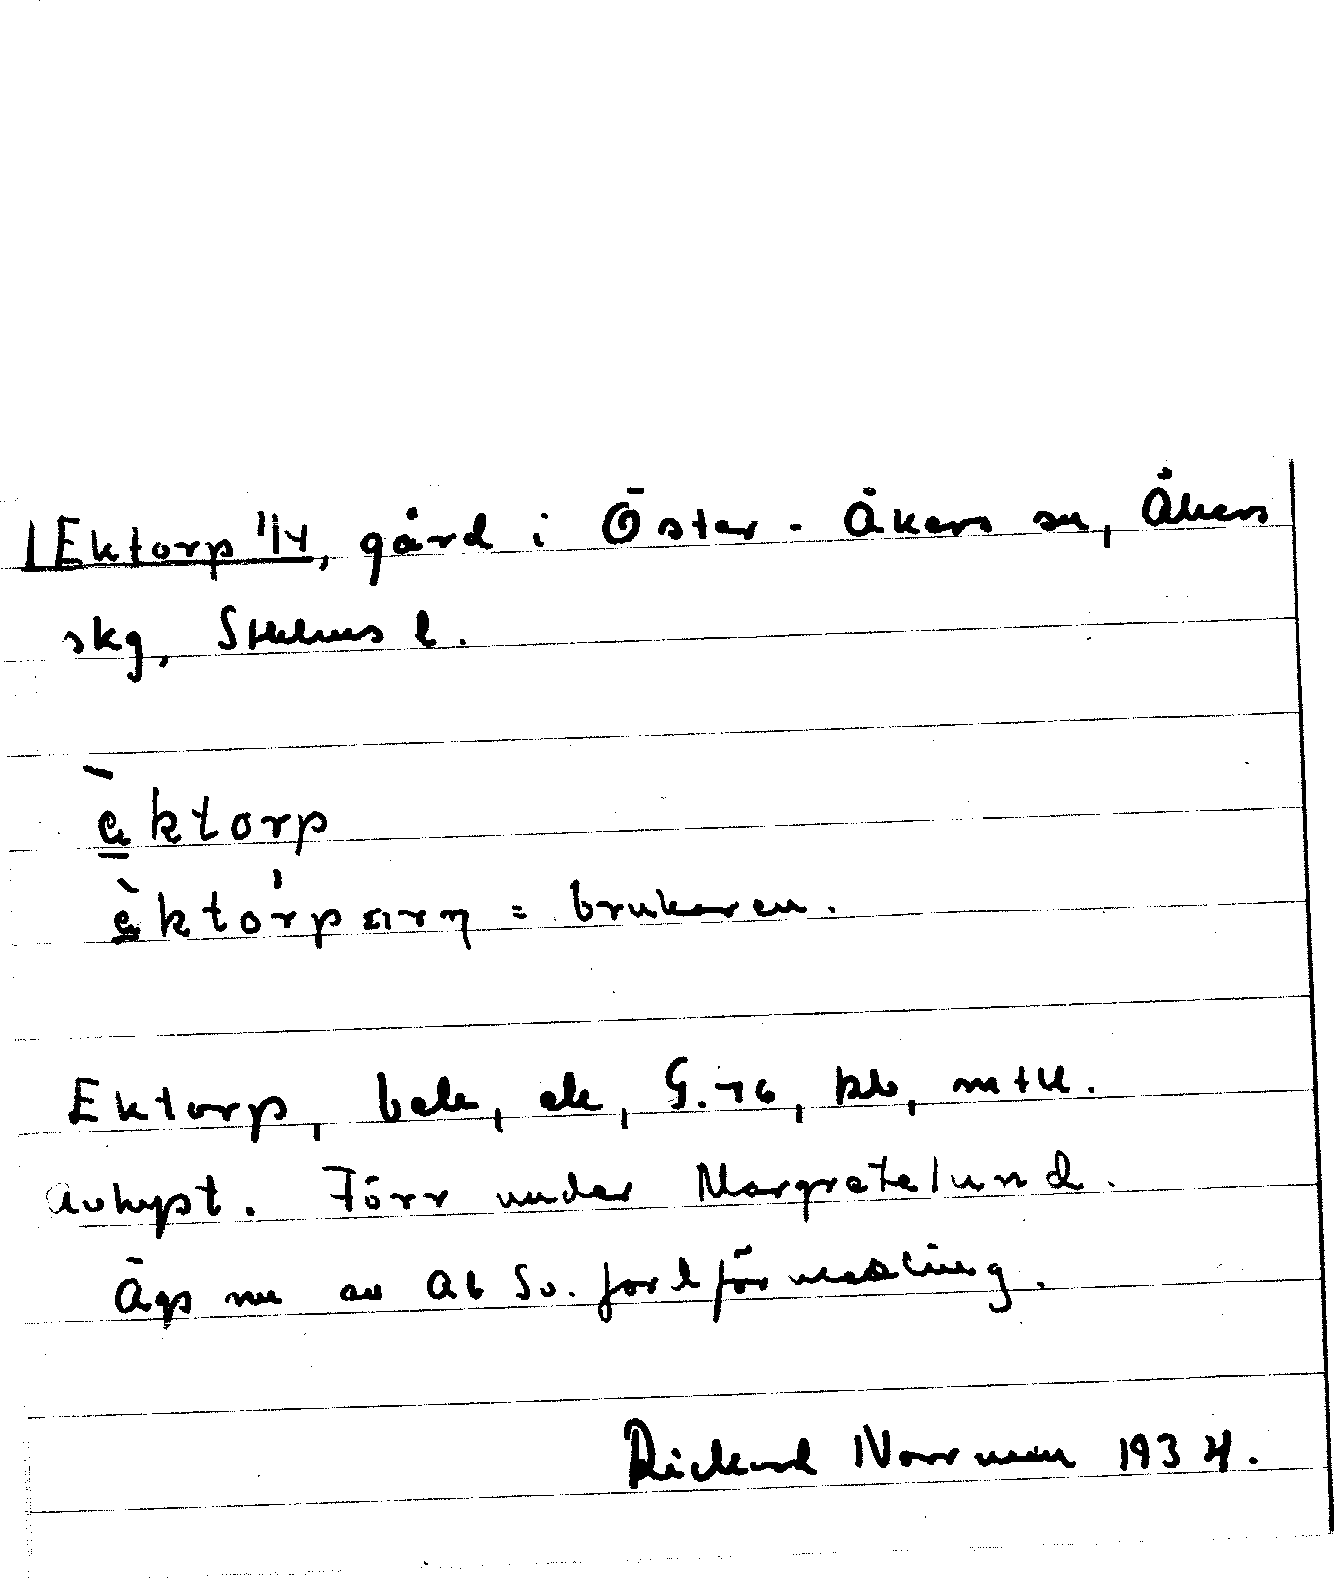 Ektorp 1/4, gård i Öster-Åkers sn, Åkers
skg, Sthlms l.
èktorp
èktórparn = brukaren.
Ektorp, bek, ek, G.76, kb, mtl.
Avhyst. Förr under Margretelund.
Ägs nu av AB Sv. jordförmedling.
Rickard Norrman 1934.